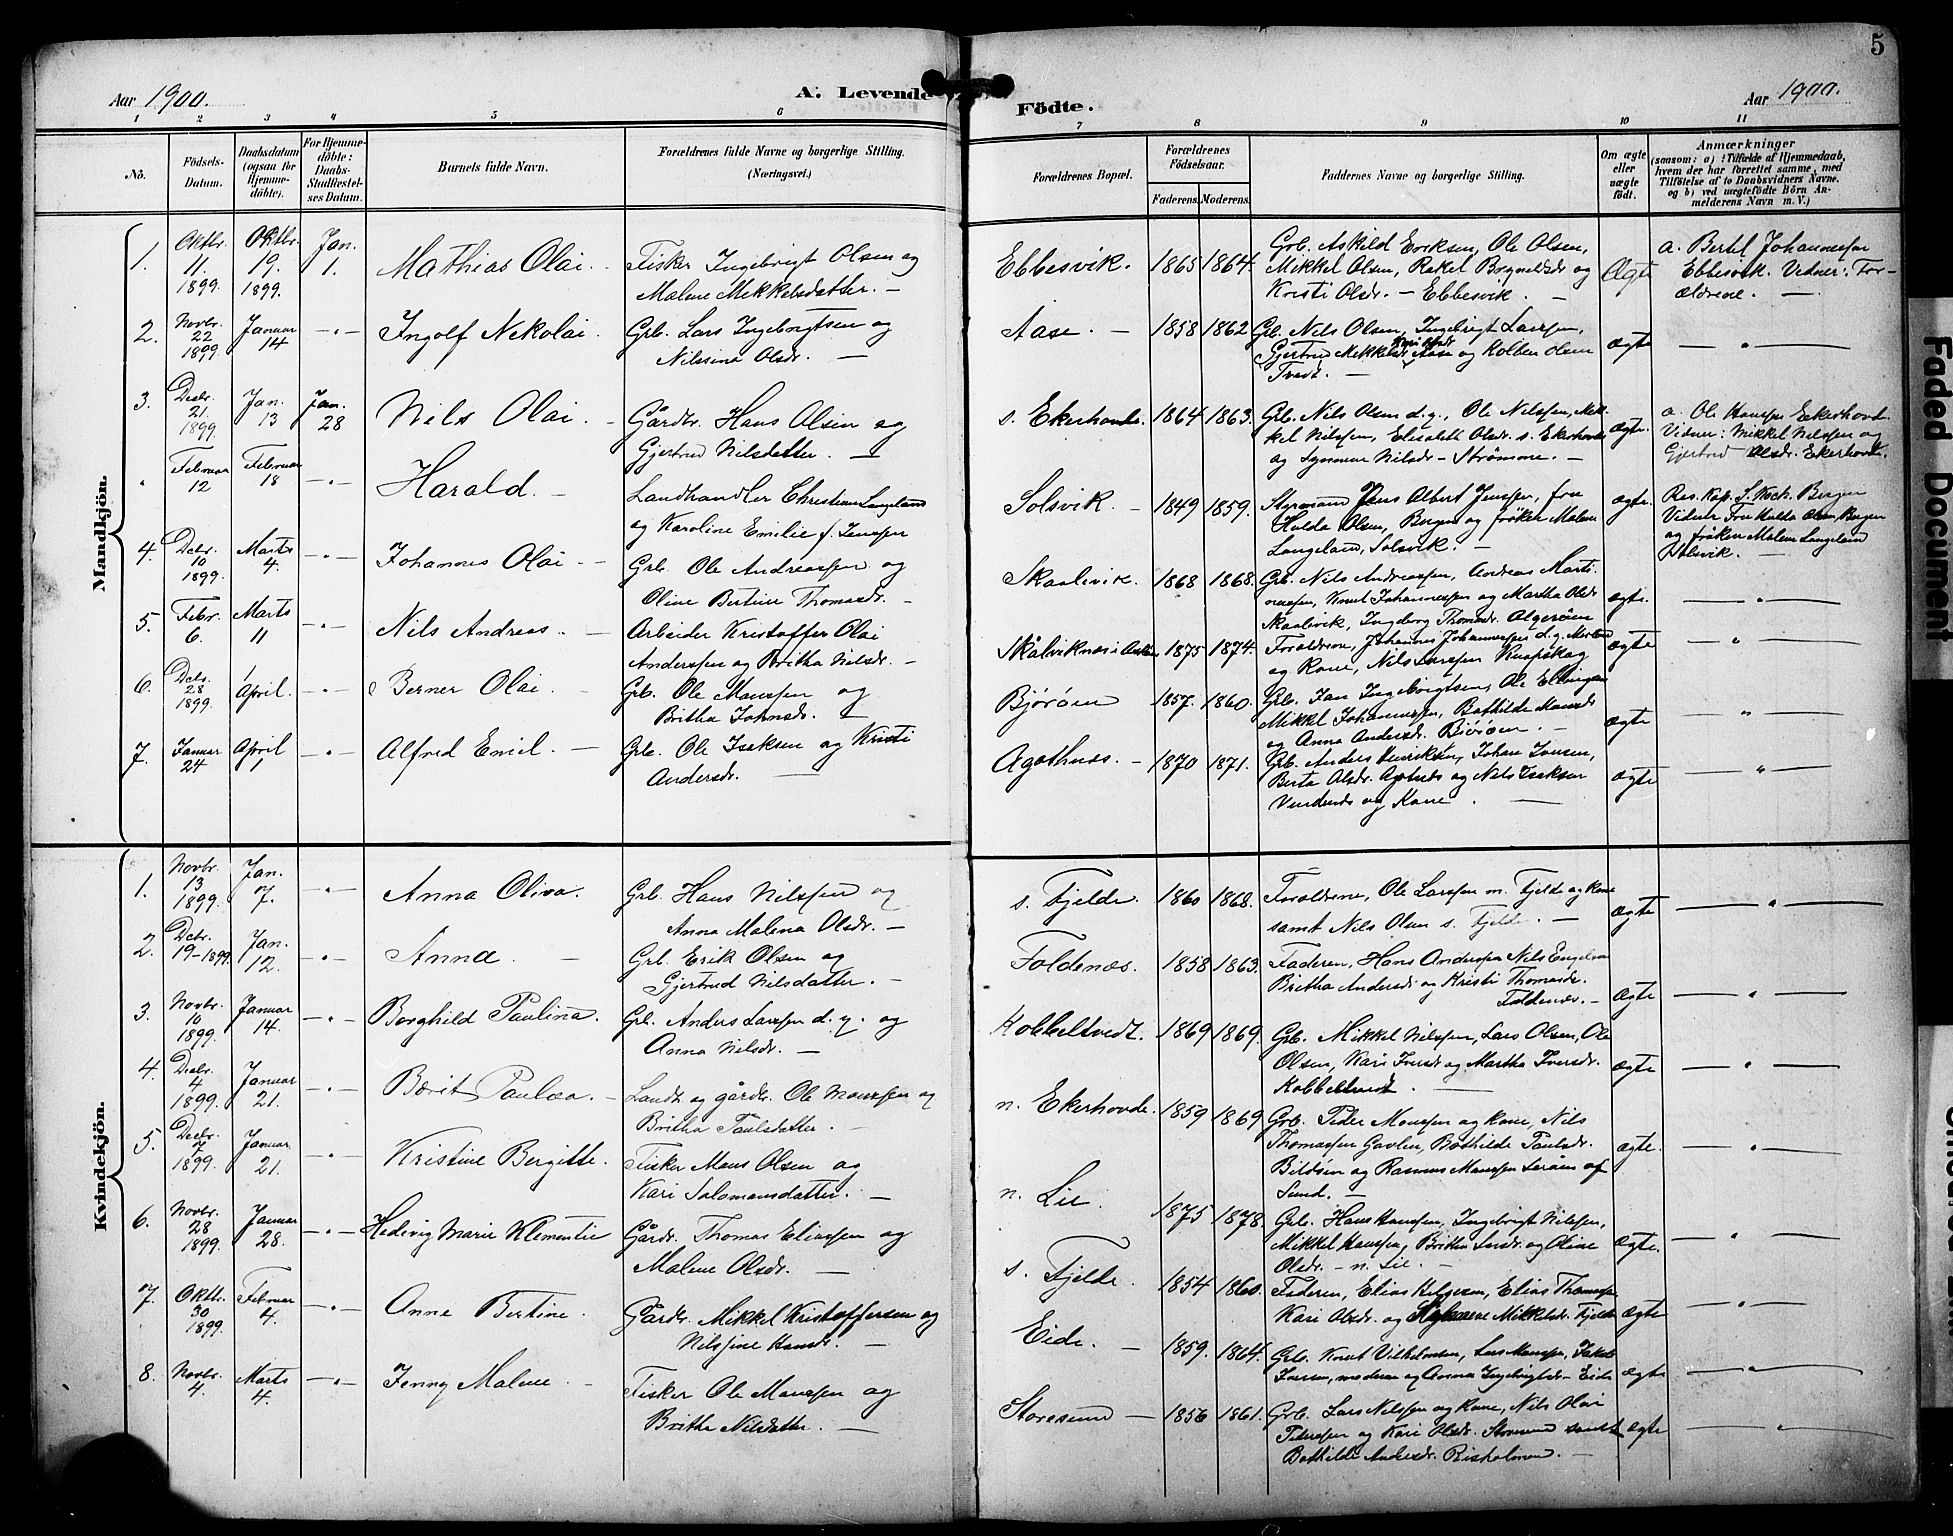 5
Aar 1900.
A. Levende Födte.
Aar 1900.
1 2 3 4 5 6 7 8 9 10 11
No.
Födsels-
Datum.
Daabsdatum
(ogsaa for
Hjemme-
döbte).
For Hjemme-
döbte:
Daabs-
Stadfæstel-
ses Datum.
Barnets fulde Navn.
Forældrenes fulde Navne og borgerlige Stilling.
(Næringsvei.)
Forældrenes Bopæl.
Forældrenes
Födselsaar.
Faderens. Moderens.
Faddernes Navne og borgerlige Stilling.
Om ægte
eller
uægte
födt.
Anmærkninger
(saasom: a) i Tilfælde af Hjemmedaab,
hvem der har forrettet samme, med
Tilföielse af to Daabsvidners Navne.
og b) ved uægtefödte Börn An-
melderens Navn m. V.)
Mandkjön.
1. Oktbr. 11. 1899 Oktbr. 19. 1899. Jan. 1. Mathias Olai. Fisker Ingebrigt Olsen og
Malene Mikkelsdatter. —
Ebbesvik. 1865 1864. Grb. Askild Eriksen, Ole Olsen,
Mikkel Olsen, Rakel Brynildsdr og
Kristi Olsdr. — Ebbesvik. —
Ægte
a. Bertel Johannessen
Ebbesvik. Vidner: For-
ældrene. —
2. Novbr. 22 1899. Januar 14 — " — Ingolf Nikolai. Grb. Lars Ingebrigtsen og
Nilsina Olsdr. —
Aase. — 1858 1862 Grb. Nils Olsen, Ingebrigt Larssen,
Gjertrud Mikkelsdr Aase og Kolben Olsen
Tvedt. —
ægte — " —
3. Decbr. 21. 1899 Jan. 13 Jan. 28 Nils Olai. Gårdbr. Hans Olsen og
Gjertrud Nilsdatter. —
s. Ekerhovde. 1864 1863. Grb. Nils Olsen d.y., Ole Nilssen, Mik-
kel Nilssen, Elisabeth Olsdr. s. Ekerhovde
og Synneve Nilsdr — Strømme. —
ægte.
a. Ole Hanssen Ekerhovde.
Vidner: Mikkel Nilssen og
Gjertrud Olsdr. Ekerhovde.
" Februar 12 Februar 18 — " — Harald. — Landhandler Christian Langeland
og Karoline Emilie f. Jenssen
Solsvik. — 1849 1859. Styrmand Jens Albert Jenssen, fru
Hulda Olsen, Bergen og frøken Malene
Langeland, Solsvik. —
ægte.
Res. Kap. S. Koch. Bergen
Vidner Fru Hulda Olsen, Bergen
og frøken Malene Langeland
Solsvik. —
4. Dcbr. 10 1899. Marts 4. — " — Johannes Olai — Grb. Ole Andreassen og
Oline Bertine Thomasdr. —
Skaalevik. 1868 1868. Grb. Nils Andreassen, Andreas Marti-
nussen, Knut Johannessen og Martha Olsdr
Skaalevik, Ingeborg Thomasdr. Algerøen
ægte. — " —
5. Febr. 6. Marts 11 — " — Nils Andreas. — Arbeider Kristoffer Olai
Anderssen og Britha Nilsdr. —
1875 1874. Forældrene, Johannes Johannessen d.y.
og Kone, Nils Larssen
ægte — " —
6. Decbr. 28 1899. 1 April. — " — Berner Olai. — Grb. Ole Monssen og
Britha Johnsdr. —
Bjørøen 1857. 1860. Grb. Jan Ingebrigtsen, Ole Ellingsen
Mikkel Johannessen, Bothilde Monsdr
og Anna Andersdr. Bjørøen —
ægte — " —
7. Januar 24 April 1 " — Alfred Emil. — Grb. Ole Isaksen og Kristi
Andersdr. —
Agothnes. — 1870 1871. Grb. Anders Henriksen, Johan Iversen,
Berta Olsdr. Agotnes og Nils Isaksen
og Kone. —
ægte — " —
Kvindekjön.
1. Novbr. 13 1899. Jan. 7. — " — Anna Oliva. Grb. Hans Nilssen og
Anna Malena Olsdr. —
s. Fjelde. 1860 1868. Forældrene, Ole Larssen m. Fjelde og Kone
samt Nils Olsen s. Fjelde. —
ægte — " —
2. Dcbr. 19 - 1899. Jan. 12. — " — Anna — Grb. Erik Olsen og
Gjertrud Nilsdatter. —
Foldenæs. 1858 1863. Faderen, Hans Anderssen Nils Engelsen
Britha Andersdr og Kristi Thomasdr.
Foldenæs. —
ægte — " —
3. Novbr. 10 1899. Januar 14. — " — Borghild Paulina. Grb. Anders Larssen d.y. og
Anna Nilsdr. —
Kobbeltvedt. 1869 1869. Grb. Mikkel Nilssen, Lars Olsen, Ole
Olsen, Kari Iversdr og Martha Iversdr.
Kobbeltvedt. —
ægte — " —
4. Decbr. 4 1899. Januar 21. — " — Berit Paulea. — Landh. og gårdbr. Ole Monssen og
Britha Paulsdatter. —
n. Ekerhovde. 1859 1869 Grb. Peder Monssen og kone, Nils
Thomassen Gavlen, Bothilde Paulsdr.
Bildøen og Rasmus Monssen Lerøen af
Sund. —
ægte. — " —
5. Decbr. 7 1899. Januar 21. — " — Kristine Bergitte. Fisker Mons Olsen og
Kari Salomonsdatter. —
n. Lie. 1875 1878. Grb. Hans Hanssen, Ingebrigt Nilssen,
Mikkel Hanssen, Brithe Larsdr. og Oline
Olsdr. — n. Lie. —
ægte. — " —
6. Novbr. 28 1899. Januar 28. — " — Hedevig Marie Klementie Gårdbr. Thomas Eliassen og
Malene Olsdr. —
s. Fjelde. 1854 1860. Faderen, Elias Helgesen, Elias Thomassen
Kari Olsdr. og Mikkelsdr. Fjelde
ægte — " —
7. Oktbr. 30 1899. Februar 4. — " — Anne Bertine. Gårdbr. Mikkel Kristoffersen og
Nilsine Hansdr. —
Eide. — 1859. 1864. Grb. Knut Vilhelmsen, Lars Monssen, Jakob
Iversen, moderen og Anna Ingebrigtsdr — Eide
ægte — " —
8. Novbr. 4. Marts 4. — " — Jenny Malene — Fisker Ole Monssen og
Britha Nilsdatter. —
Storesund — 1856 1861. Grb. Lars Nilssen og Kone, Nils Olai
Pederssen og Kari Olsdr. Storesund samt
Bothilde Andersdr. Risholmen. —
ægte — " —
Faded Document